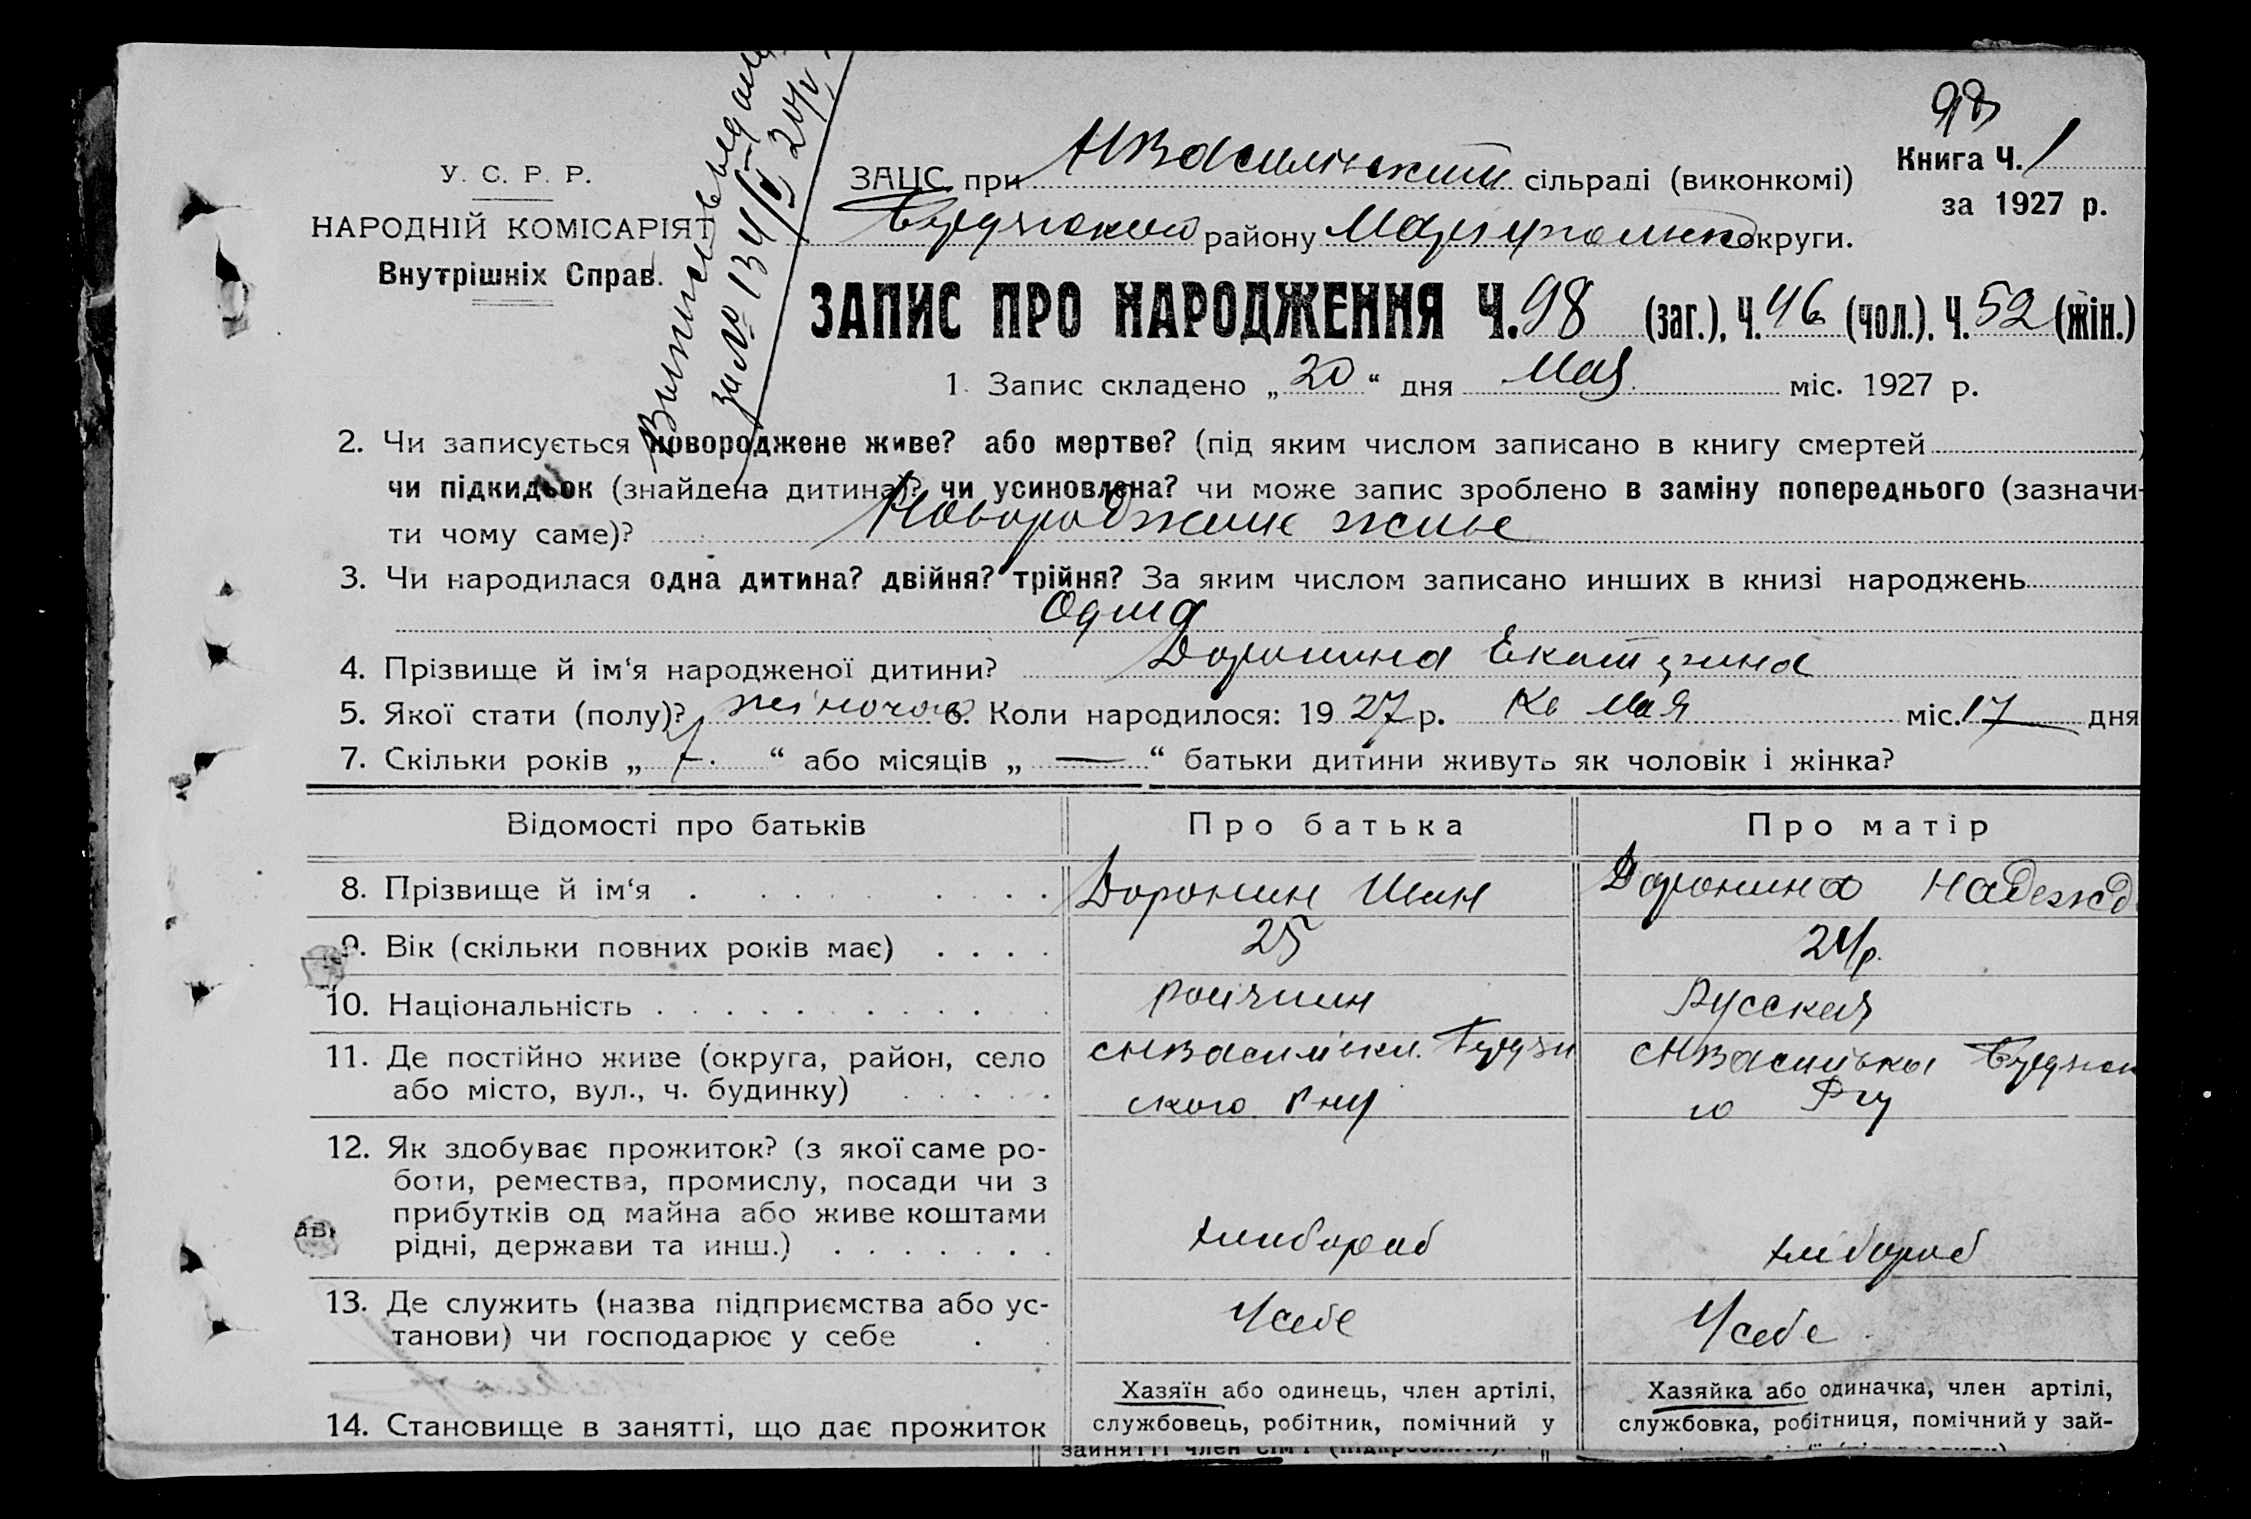 98
Книга Ч. 1
за 1927 р.
У. С. Р. Р.
НАРОДНІЙ КОМІСАРІЯТ
Внутрішніх Справ.
за № 134
ЗАЦС при НВасилівській сільраді (виконкомі)
району округи.
ЗАПИС ПРО НАРОДЖЕННЯ Ч. 98 (заг.), Ч. 46 (чол.). Ч. 52 (жін.)
1. Запис складено „ 20 “ дня Мая міс. 1927 р.
2. Чи записується новороджене живе? або мертве? (під яким числом записано в книгу смертей )
чи підкидьок (знайдена дитина)? чи усиновлена? чи може запис зроблено в заміну попереднього (зазначи-
ти чому саме)? Новороджене живе
3. Чи народилася одна дитина? двійня? трійня? За яким числом записано инших в книзі народжень
Одна
4. Прізвище й ім‘я народженої дитини? Доронина Екатерина
5. Якої стати (полу)? жіночої 6. Коли народилося: 19 27 р. Мая міс. 17 дня
7. Скільки років „ “ або місяців „ — “ батьки дитини живуть як чоловік і жінка?
Відомості про батьків Про батька Про матір
8. Прізвище й ім‘я Доронин Доронина Надежд
9. Вік (скільки повних років має) 25 24 р.
10. Національність Русская
11. Де постійно живе (округа, район, село
або місто, вул., ч. будинку)
ского Рну
12. Як здобуває прожиток? (з якої саме ро-
боти, ремества, промислу, посади чи з
прибутків од майна або живе коштами
рідні, держави та инш.) хлибороб хлібороб
13. Де служить (назва підприємства або ус-
танови) чи господарює у себе У себе У себе
14. Становище в занятті, що дає прожиток
Хазяїн або одинець, член артілі,
службовець, робітник, помічний у
зайнятті член сім'ї (підкреслити).
Хазяйка або одиначка, член артілі,
службовка, робітниця, помічний у зай-